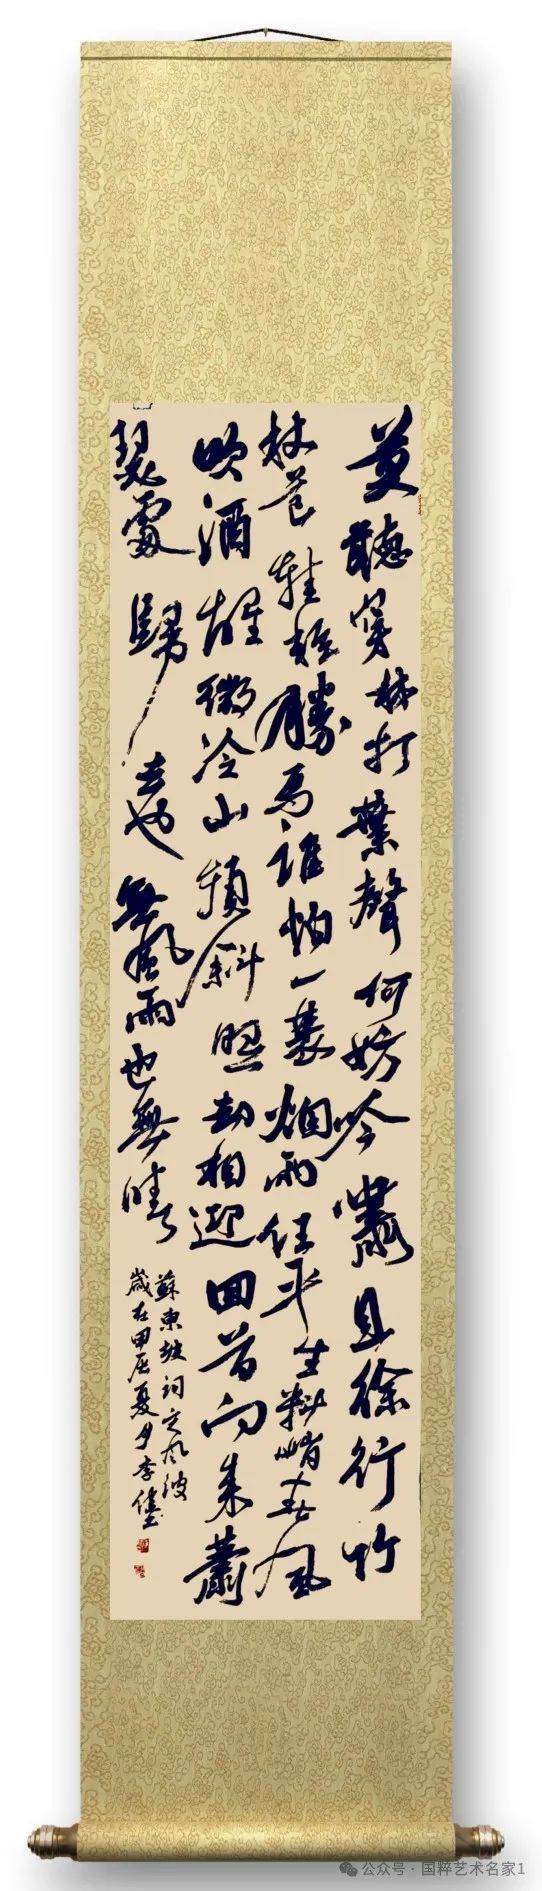 莫聽穿林打葉聲何妨吟嘯且徐行竹
杖芒鞋輕勝馬誰怕一蓑烟雨任平生料峭春風
吹酒醒微冷山頭斜照却相迎回首向来蕭
瑟處歸去也無風雨也無晴
蘇東坡詞定風波
歲在甲辰夏月李
公众号 · 国粹艺术名家1